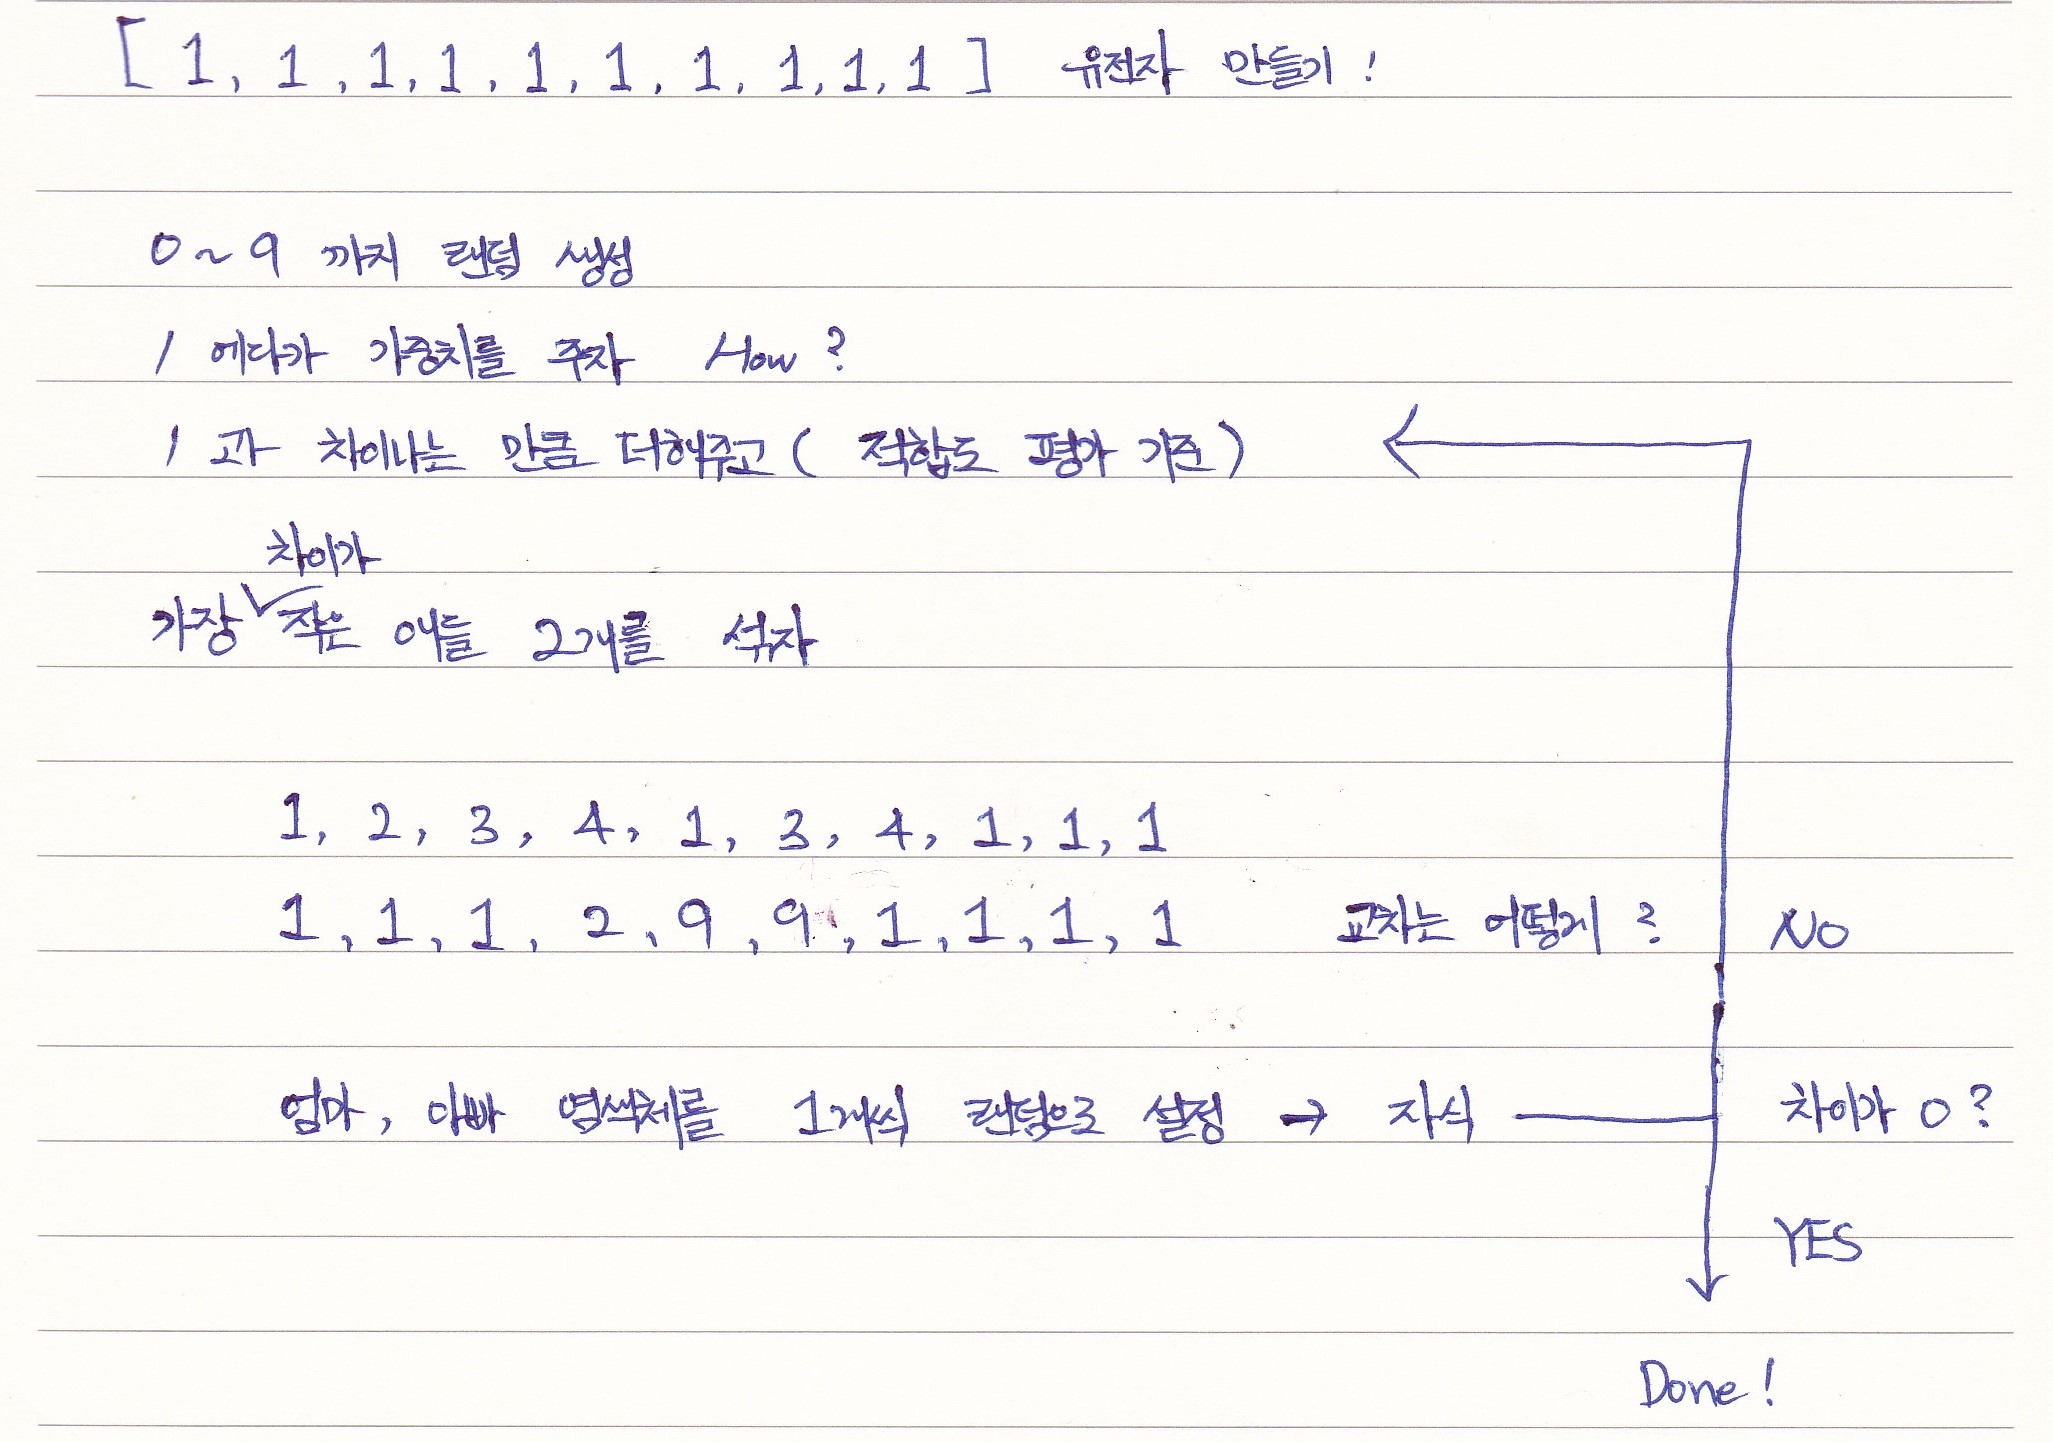 [ 1, 1, 1, 1, 1, 1, 1, 1, 1, 1 ] 유전자 만들기!
0~9 까지 랜덤 생성
1 에다가 가중치를 주자 How?
1 과 차이나는 만큼 더해주고 ( 적합도 평가 기준 )
차이가
가장 작은 애들 2개를 섞자
1, 2, 3, 4, 1, 3, 4, 1, 1, 1
1, 1, 1, 2, 9, 9, 1, 1, 1, 1 교차는 어떻게? NO
엄마, 아빠 염색체를 1개씩 랜덤으로 설정 → 자식 차이가 0?
YES
Done!